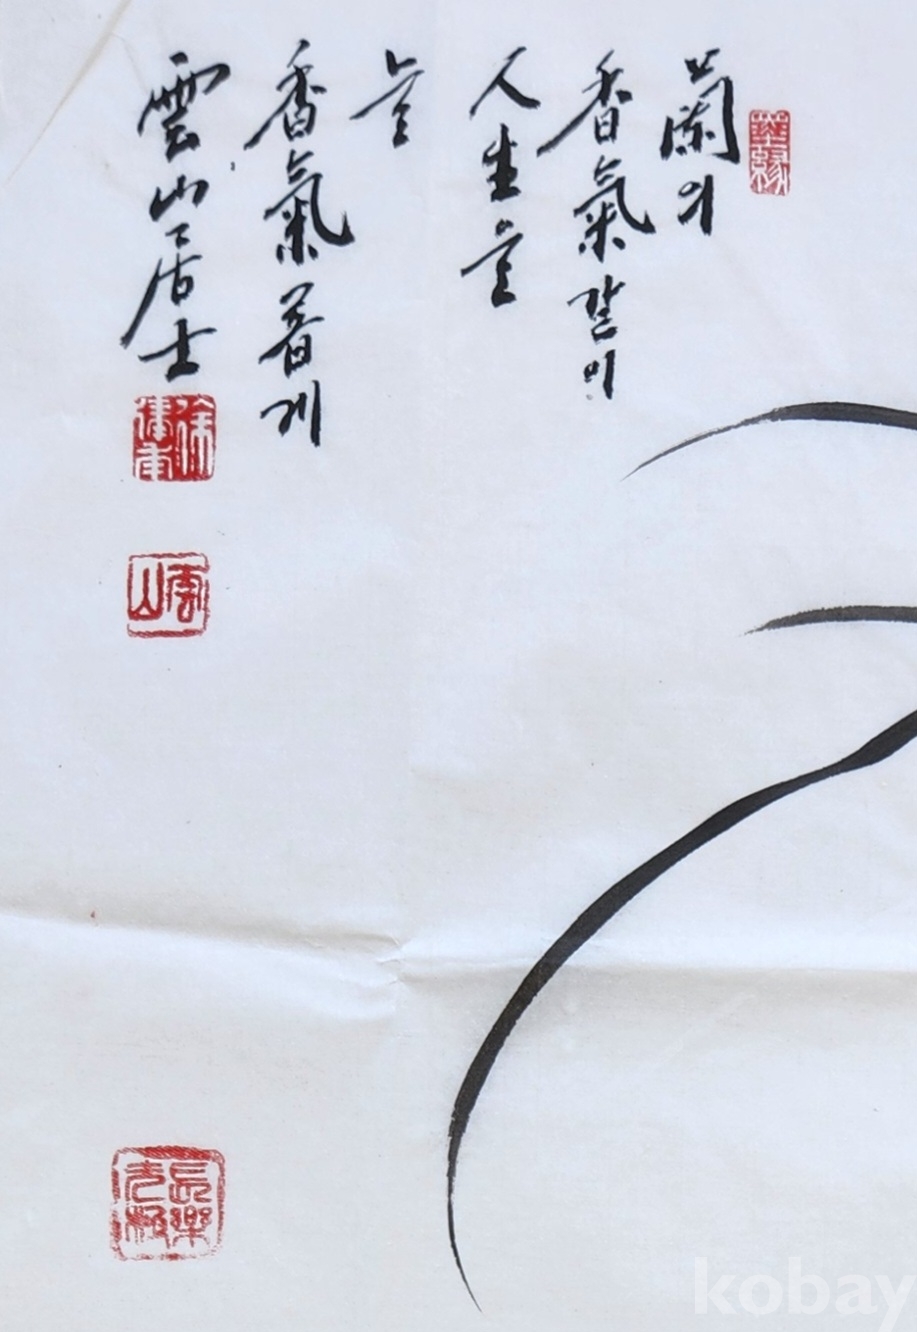 蘭의
香氣같이
人生을
늘
香氣롭게
雲山居士
雲山
長樂
无極
kobay